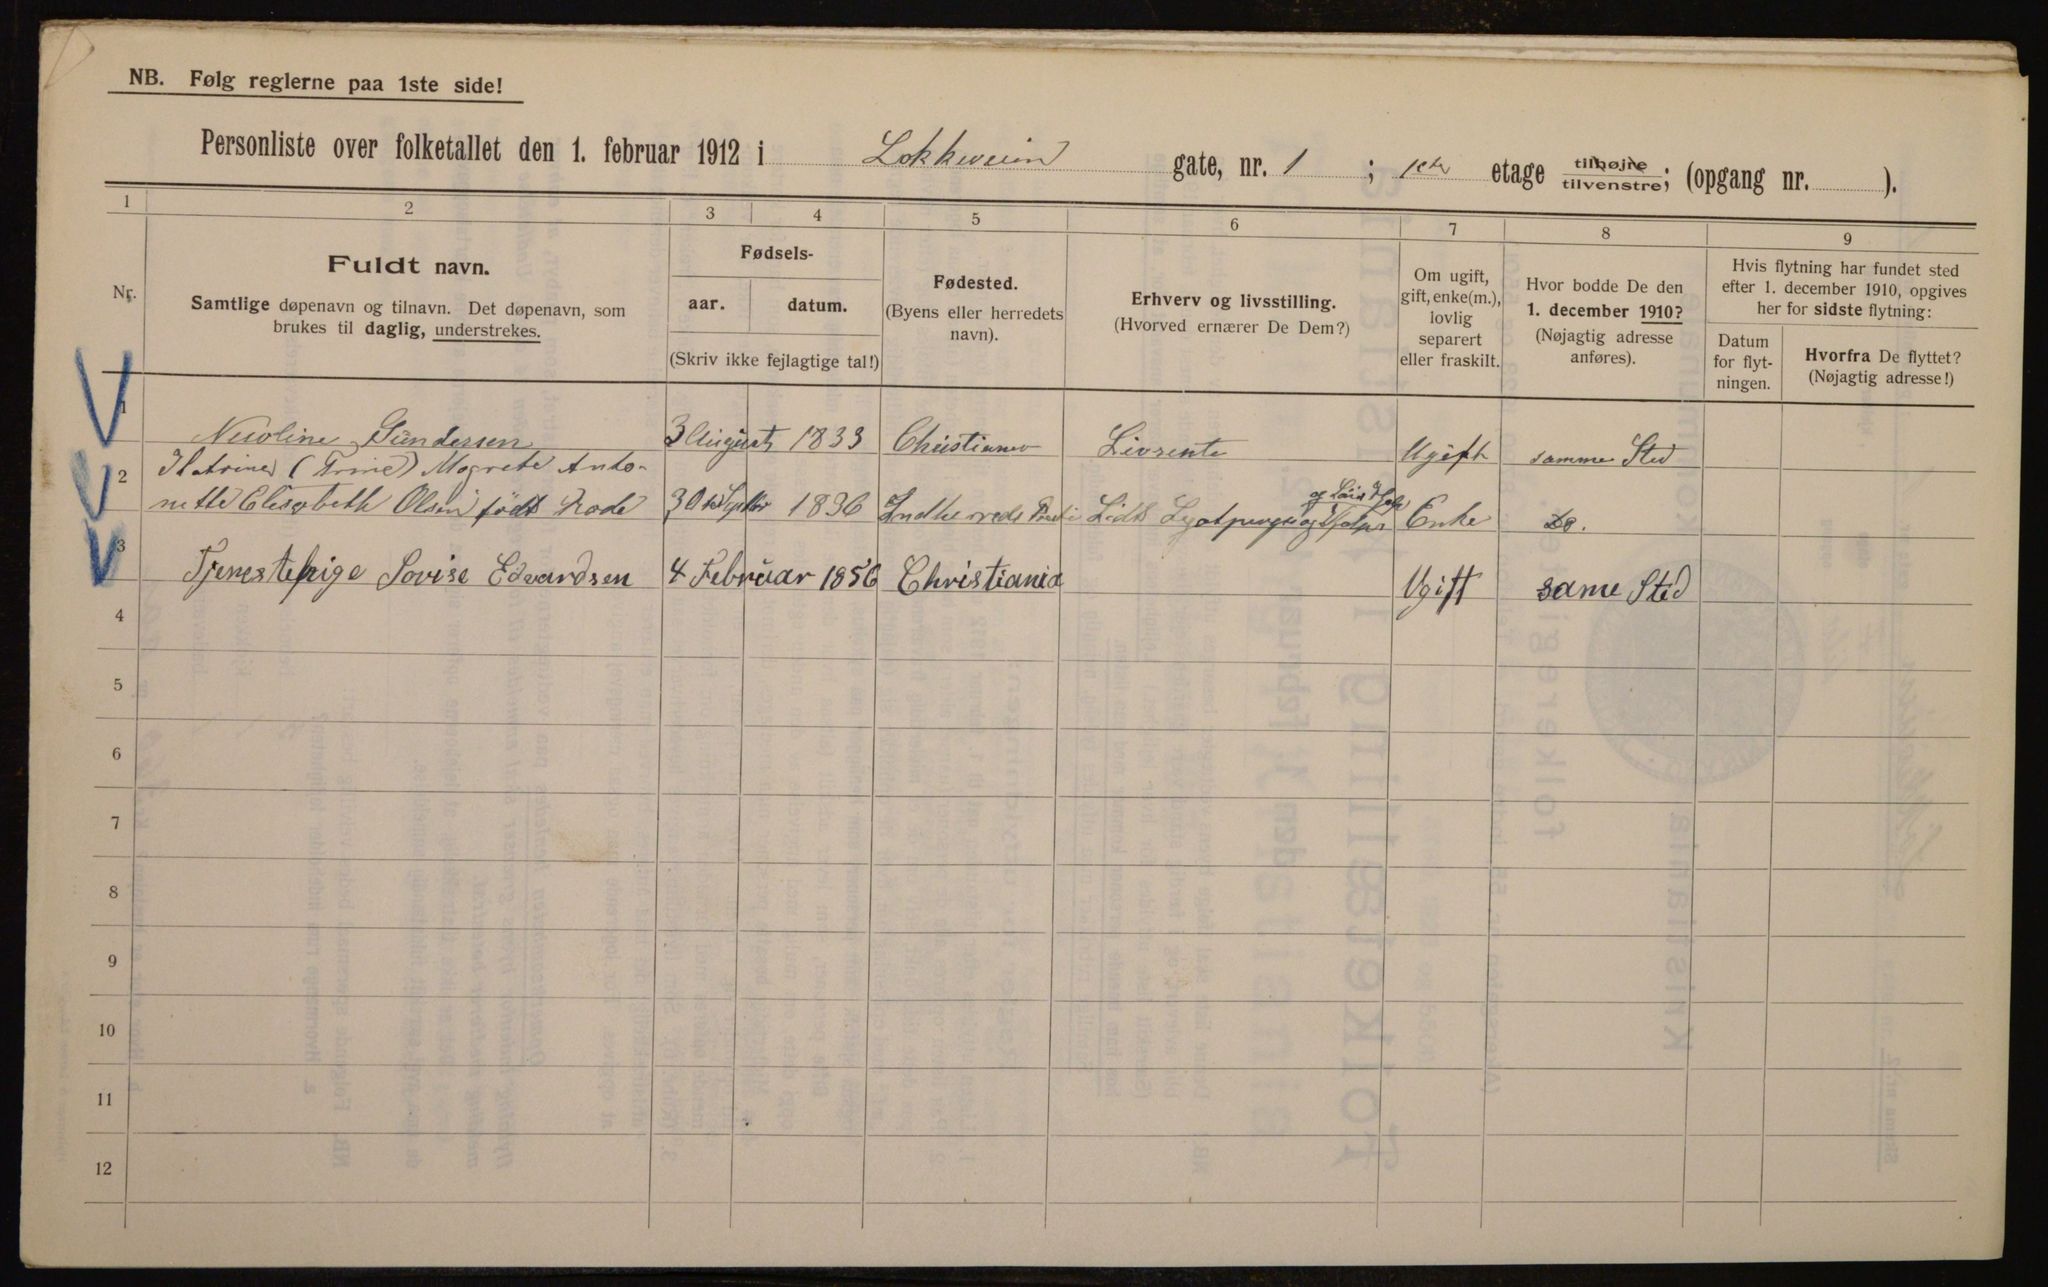 NB. Følg reglerne paa 1ste side!
Personliste over folketallet den 1. februar 1912 i Løkkeveien gate, nr. 1 ; 1ste etage tilhøjre tilvenstre; (opgang nr. ).
1 2 3 4 5 6 7 8 9
Nr.
Fuldt navn.
Samtlige døpenavn og tilnavn. Det døpenavn, som
brukes til daglig, understrekes.
Fødsels-
aar. datum.
(Skriv ikke fejlagtige tal!)
Fødested.
(Byens eller herredets
navn).
Erhverv og livsstilling.
(Hvorved ernærer De Dem?)
Om ugift,
gift, enke(m.),
lovlig
separert
eller fraskilt.
Hvor bodde De den
1. december 1910?
(Nøjagtig adresse
anføres).
Hvis flytning har fundet sted
efter 1. december 1910, opgives
her for sidste flytning:
Datum
for flyt-
ningen.
Hvorfra De flyttet?
(Nøjagtig adresse!)
1 Nicoline Gundersen 3 August 1833 Christiania Livrente Ugift samme Sted
2 Katrine (Trine) Magrete Anto-
nette Elisabeth Olsen født Rode 30 1836 Indherreds Enke Do.
3 Tjenestepige Lovise Edvardsen 4 Februar 1856 Christiania Ugift same Sted
4
5
6
7
8
9
10
11
12